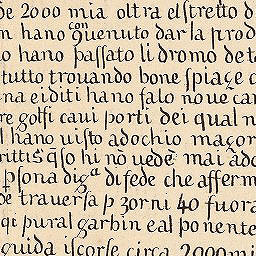 de 2000 mia oltra elstretto d
n hano conuenuto dar la prod
o hano passato li dromo de to
tutto trouando bone spiage c
na eiditi hano falo noue car
re golfi caui porti dei qual n
l hano uisto adochio magor
rittis qso hi no uede mai ado
psona diga di fede che afferm
de trauersa p zorni 40 fuora
qe pural garbin e al ponente
guida iscorse circa 2000 mi